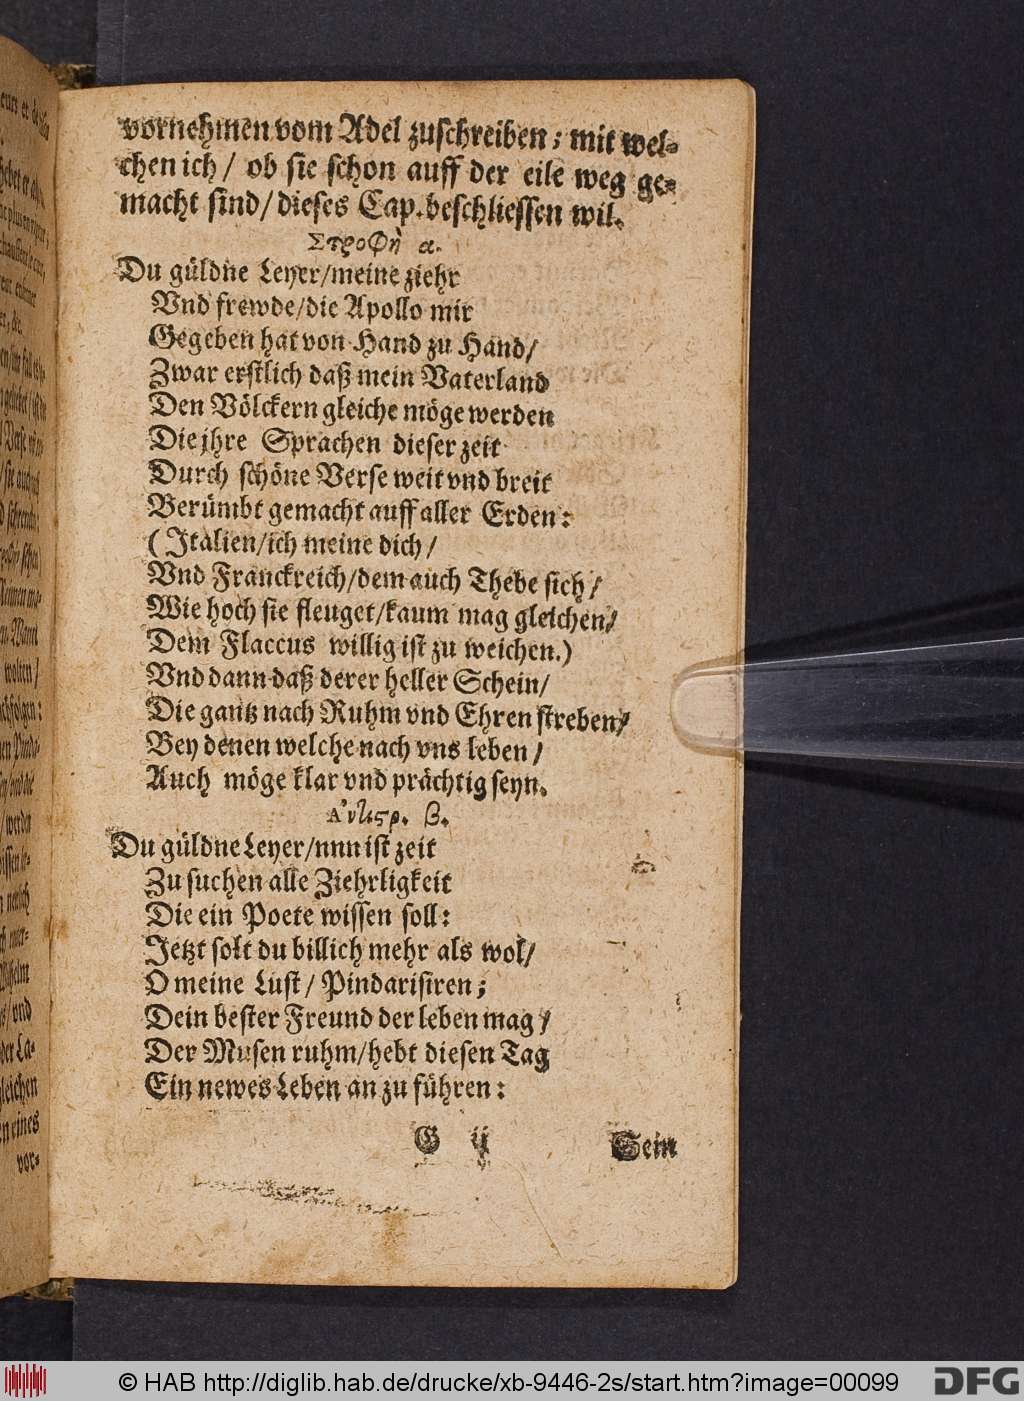 vornehmen vom Adel zuschreiben; mit wel-
chen ich/ ob sie schon auff der eile weg ge-
macht sind/ dieses Cap. beschliessen wil.
Στροφὴ α.
Du güldne Leyer/ meine ziehr
Vnd frewde/ die Apollo mir
Gegeben hat von Hand zu Hand/
Zwar erstlich daß mein Vaterland
Den Völckern gleiche möge werden
Die jhre Sprachen dieser zeit
Durch schöne Verse weit vnd breit
Berümbt gemacht auff aller Erden:
(Italien/ ich meine dich/
Vnd Franckreich/ dem auch Thebe sich/
Wie hoch sie fleuget/ kaum mag gleichen/
Dem Flaccus willig ist zu weichen.)
Vnd dann daß derer heller Schein/
Die gantz nach Ruhm vnd Ehren streben/
Bey denen welche nach vns leben/
Auch möge klar vnd prächtig seyn.
Ἀντιςρ. β.
Du güldne Leyer/ nnn ist zeit
Zu suchen alle Ziehrligkeit
Die ein Poete wissen soll:
Jetzt solt du billich mehr als wol/
O meine Lust/ Pindarisiren;
Dein bester Freund der leben mag/
Der Musen ruhm/ hebt diesen Tag
Ein newes Leben an zu führen:
G ij Sein
© HAB http://diglib.hab.de/drucke/xb-9446-2s/start.htm?image=00099
DFG